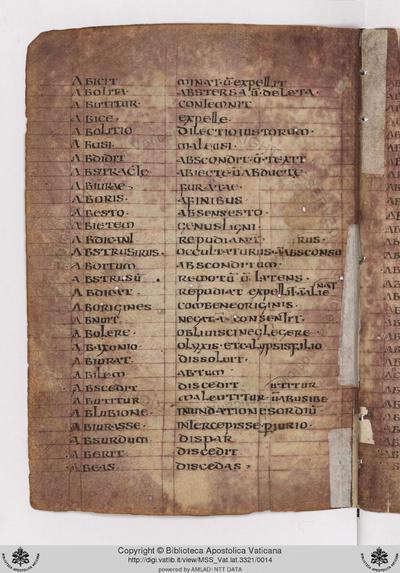 ABICIT MINAT·ū·EXPELLIT
ABOLITA· ABSTERSA ū·DELETA·
ABUTITUR· CONTEMNIT
ABICE· EXPELLE·
ABOLITIO DILECTIO
ABUSI· MALEUSI·
ABDIDIT ABSCONDIT·ū·TEXIT
ABIECTE·ū·ABDUCTE
ABIURAE· FURATAE·
ABORIS· AFINIBUS·
ABESTO· ABSENSESTO·
ABIETEM GENUSLIGNI·
ABDICANT REPUDIANT· RUS·
ABSTRUSIRUS· OCCULTATURUS·ūABSCONSU
ABDITUM ABSCONDITUM·
ABSTRUSū REMOTū ū LATENS·
ABDICAT REPUDIAT EXPELLIT·ū·ALIE NAT
ABORIGINES
ABNUIT· NEGAT·
ABOLERE· OBLIUISCI NEGLEGERE·
ABIURAT· DISSOLUIT·
ABILEM ABTUM
ABSCEDIT DISCEDIT UTITUR
ABUTITUR MALEUTITUR ūABUSIBE
ABLUBIONE· INUNDATIONE
ABIURASSE· INTERCEPISSE·PIURIO·
ABSURDUM DISPAR
ABERIT· DISCEDIT
ABEAS· DISCEDAS·
Copyright © Biblioteca Apostolica Vaticana
http://digi.vatlib.it/view/MSS_Vat.lat.3321/0014
powered by AMLAD-NTT DATA